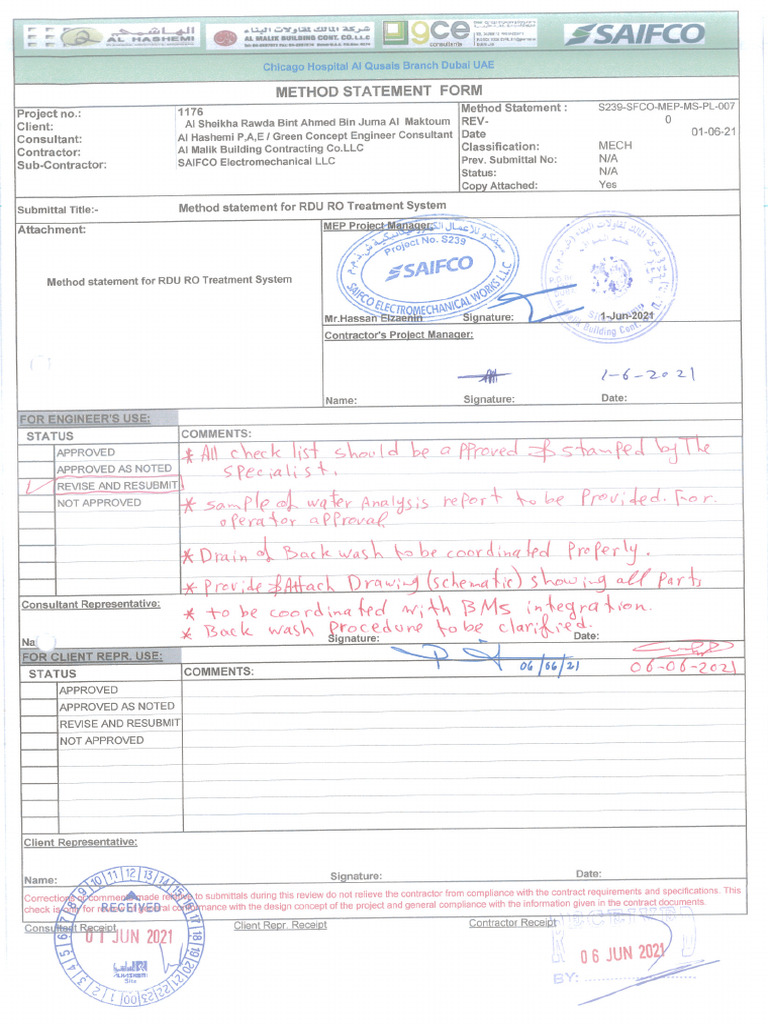 AL HASHEMI
شركة المالك لمقاولات البناء
AL MALIK BUILDING CONT. CO.L.L.C
gce
consultants
SAIFCO
Chicago Hospital Al Qusais Branch Dubai UAE
METHOD STATEMENT FORM
Project no.: 1176
Client: Al Sheikha Rawda Bint Ahmed Bin Juma Al Maktoum
Consultant: Al Hashemi P,A,E / Green Concept Engineer Consultant
Contractor: Al Malik Building Contracting Co.LLC
Sub-Contractor: SAIFCO Electromechanical LLC
Method Statement : S239-SFCO-MEP-MS-PL-007
REV- 0
Date 01-06-21
Classification: MECH
Prev. Submittal No: N/A
Status: N/A
Copy Attached: Yes
Submittal Title:- Method statement for RDU RO Treatment System
Attachment:
Method statement for RDU RO Treatment System
MEP Project Manager:
Project No. S239
SAIFCO
SAIFCO ELECTROMECHANICAL WORKS LLC
Mr.Hassan Elzaenin Signature: 1-Jun-2021
Contractor's Project Manager:
1-6-2021
Name: Signature: Date:
FOR ENGINEER'S USE:
STATUS COMMENTS:
APPROVED
APPROVED AS NOTED
REVISE AND RESUBMIT
NOT APPROVED
* All check list should be approved & stamped by The
specialist.
* sample of water Analysis report to be Provided. For
operator approval
* Drain of Back wash to be coordinated Properly.
* Provide & Attach Drawing (schematic) showing all Parts
* to be coordinated with BMS integration.
* Back wash Procedure to be clarified.
Consultant Representative:
Na Signature: Date:
06/06/21
06-06-2021
FOR CLIENT REPR. USE:
STATUS COMMENTS:
APPROVED
APPROVED AS NOTED
REVISE AND RESUBMIT
NOT APPROVED
Client Representative:
Name: Signature: Date:
Corrections or comments made relative to submittals during this review do not relieve the contractor from compliance with the contract requirements and specifications. This
check is only for review of general conformance with the design concept of the project and general compliance with the information given in the contract documents.
Consultant Receipt Client Repr. Receipt Contractor Receipt
RECEIVED
01 JUN 2021
ALHASHEMI
Site
RECEIVED
06 JUN 2021
BY: